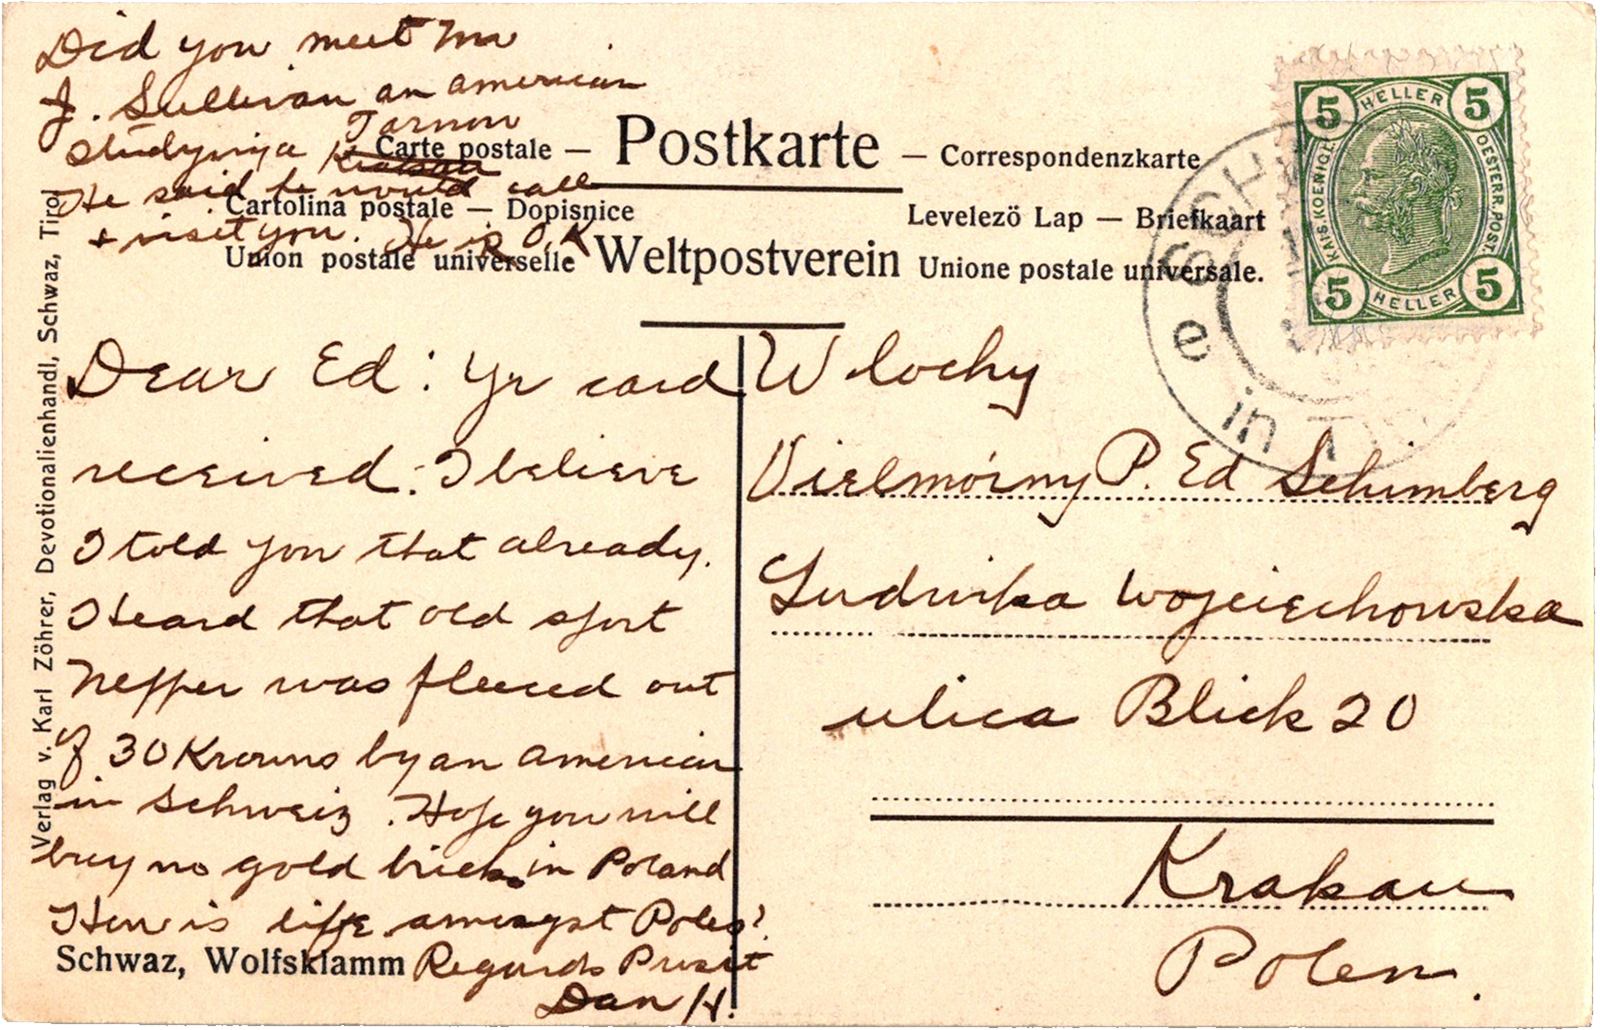 Did you meet Mr
J. Sullivan an american
studying a Tarnow
He said he would call
+ visit you. He is O.K
Carte postale — Postkarte — Correspondenzkarte
Cartolina postale — Dopisnice
Levelező Lap — Briefkaart
Union postale universelle Weltpostverein Unione postale universale.
5 HELLER 5
KAIS. KOENIGL. OESTERR. POST.
5 HELLER 5
SCH
e in
Dear Ed: Yr card
received. I believe
I told you that already.
Heard that old sport
Neffer was fleeced out
of 30 Krowns by an american
in Schweiz. Hope you will
buy no gold bricks in Poland
How is life amongst Poles?
Regards Prosit
Dan H.
Wlochy
Vielmórny P. Ed Schimberg
Ludwika Wojciechowska
ulica Blich 20
Krakau
Polen.
Schwaz, Wolfsklamm
Verlag v. Karl Zöhrer, Devotionalienhandl, Schwaz, Tirol